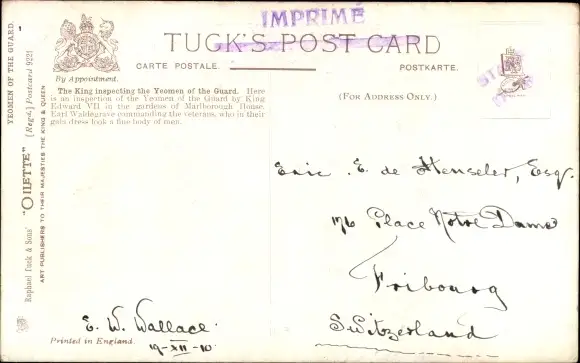 IMPRIMÉ
TUCK'S POST CARD
CARTE POSTALE.
POSTKARTE.
By Appointment.
(FOR ADDRESS ONLY.)
The King inspecting the Yeomen of the Guard. Here
is an inspection of the Yeomen of the Guard by King
Edward VII in the gardens of Marlborough House.
Earl Waldegrave commanding the veterans, who in their
gala dress look a fine body of men.
YEOMEN OF THE GUARD. 1
Raphael Tuck & Sons' "OILETTE" [Regd.] Postcard 9221
ART PUBLISHERS TO THEIR MAJESTIES THE KING & QUEEN
Eric . E. de Henseler, Esq.
176 Place Notre Dame
Fribourg
Switzerland
E. W. Wallace.
Printed in England.
19-XII-10.